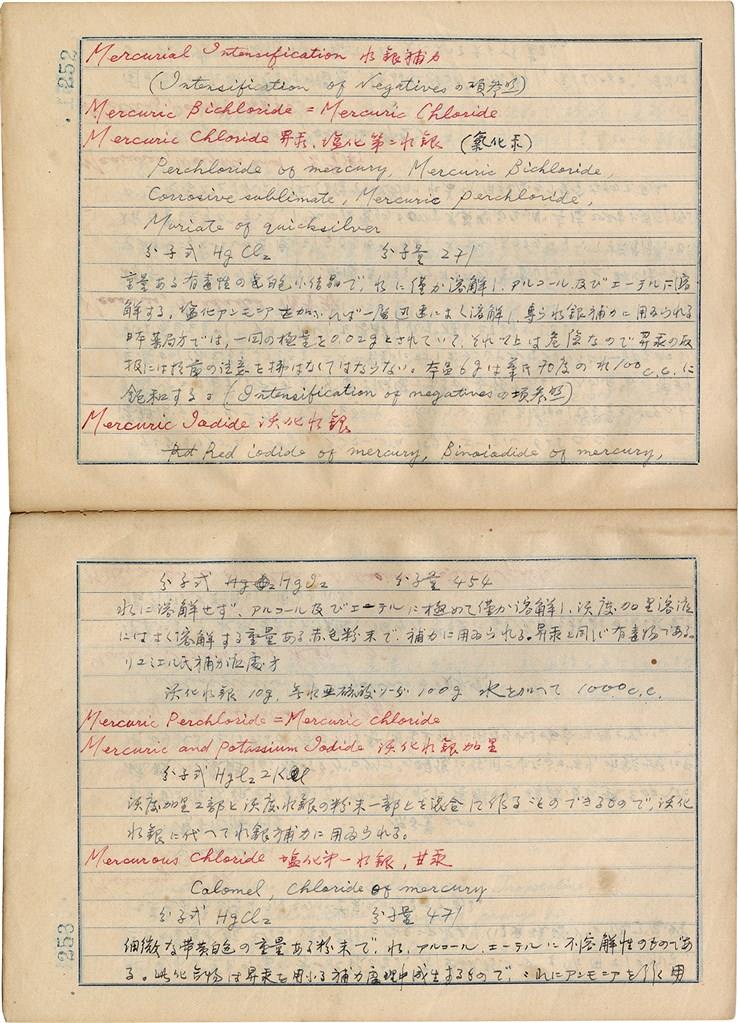 252
Mercurial Intensification 水銀補力
(Intensification of Negativesの項参照)
Mercuric Bichloride = Mercuric Chloride
Mercuric Chloride 昇汞、塩化第二水銀 (氯化汞)
Perchloride of mercury, Mercuric Bichloride,
Corrosive sublimate, Mercuric perchloride,
Muriate of quicksilver
分子式 HgCl₂ 分子量 271
重量ある有毒性の白色小結晶で、水に僅か溶解し、アルコール及びエーテルに溶
解する。塩化アンモニアを加ふれば一層迅速によく溶解し、専ら水銀補力に用ゐられる
日本薬局方では、一回の極量を0.02gとされていて、それ以上は危険なので昇汞の取
扱には注意を拂はなくてはならない。本品6gは華氏70度の水100c.c.に
飽和する。(Intensification of negativesの項参照)
Mercuric Iodide 沃化水銀
Red iodide of mercury, Biniodide of mercury,
分子式 HgI₂ 分子量 454
水に溶解せず、アルコール及びエーテルに極めて僅か溶解し、沃度加里溶液
にはよく溶解する重量ある赤色粉末で、補力に用ゐられる。昇汞と同じく有毒物である。
リユミエール氏補力液處方
沃化水銀 10g, 無水亜硫酸ソーダ 100g 水を加へて 1000c.c.
Mercuric Perchloride = Mercuric chloride
Mercuric and potassium Iodide 沃化水銀加里
分子式 HgI₂2KI
沃度加里2部と沃度水銀の粉末一部とを混合して作ることのできるもので、沃化
水銀に代へて水銀補力に用ゐられる。
Mercurous Chloride 塩化第一水銀, 甘汞
Calomel, Chloride of mercury
分子式 HgCl₂ 分子量 471
細微な帯黄白色の重量ある粉末で、水、アルコール、エーテルに不溶解性のものであ
る。此化合物は昇汞を用ふる補力處理中成生するもので、これにアンモニアを作用
253